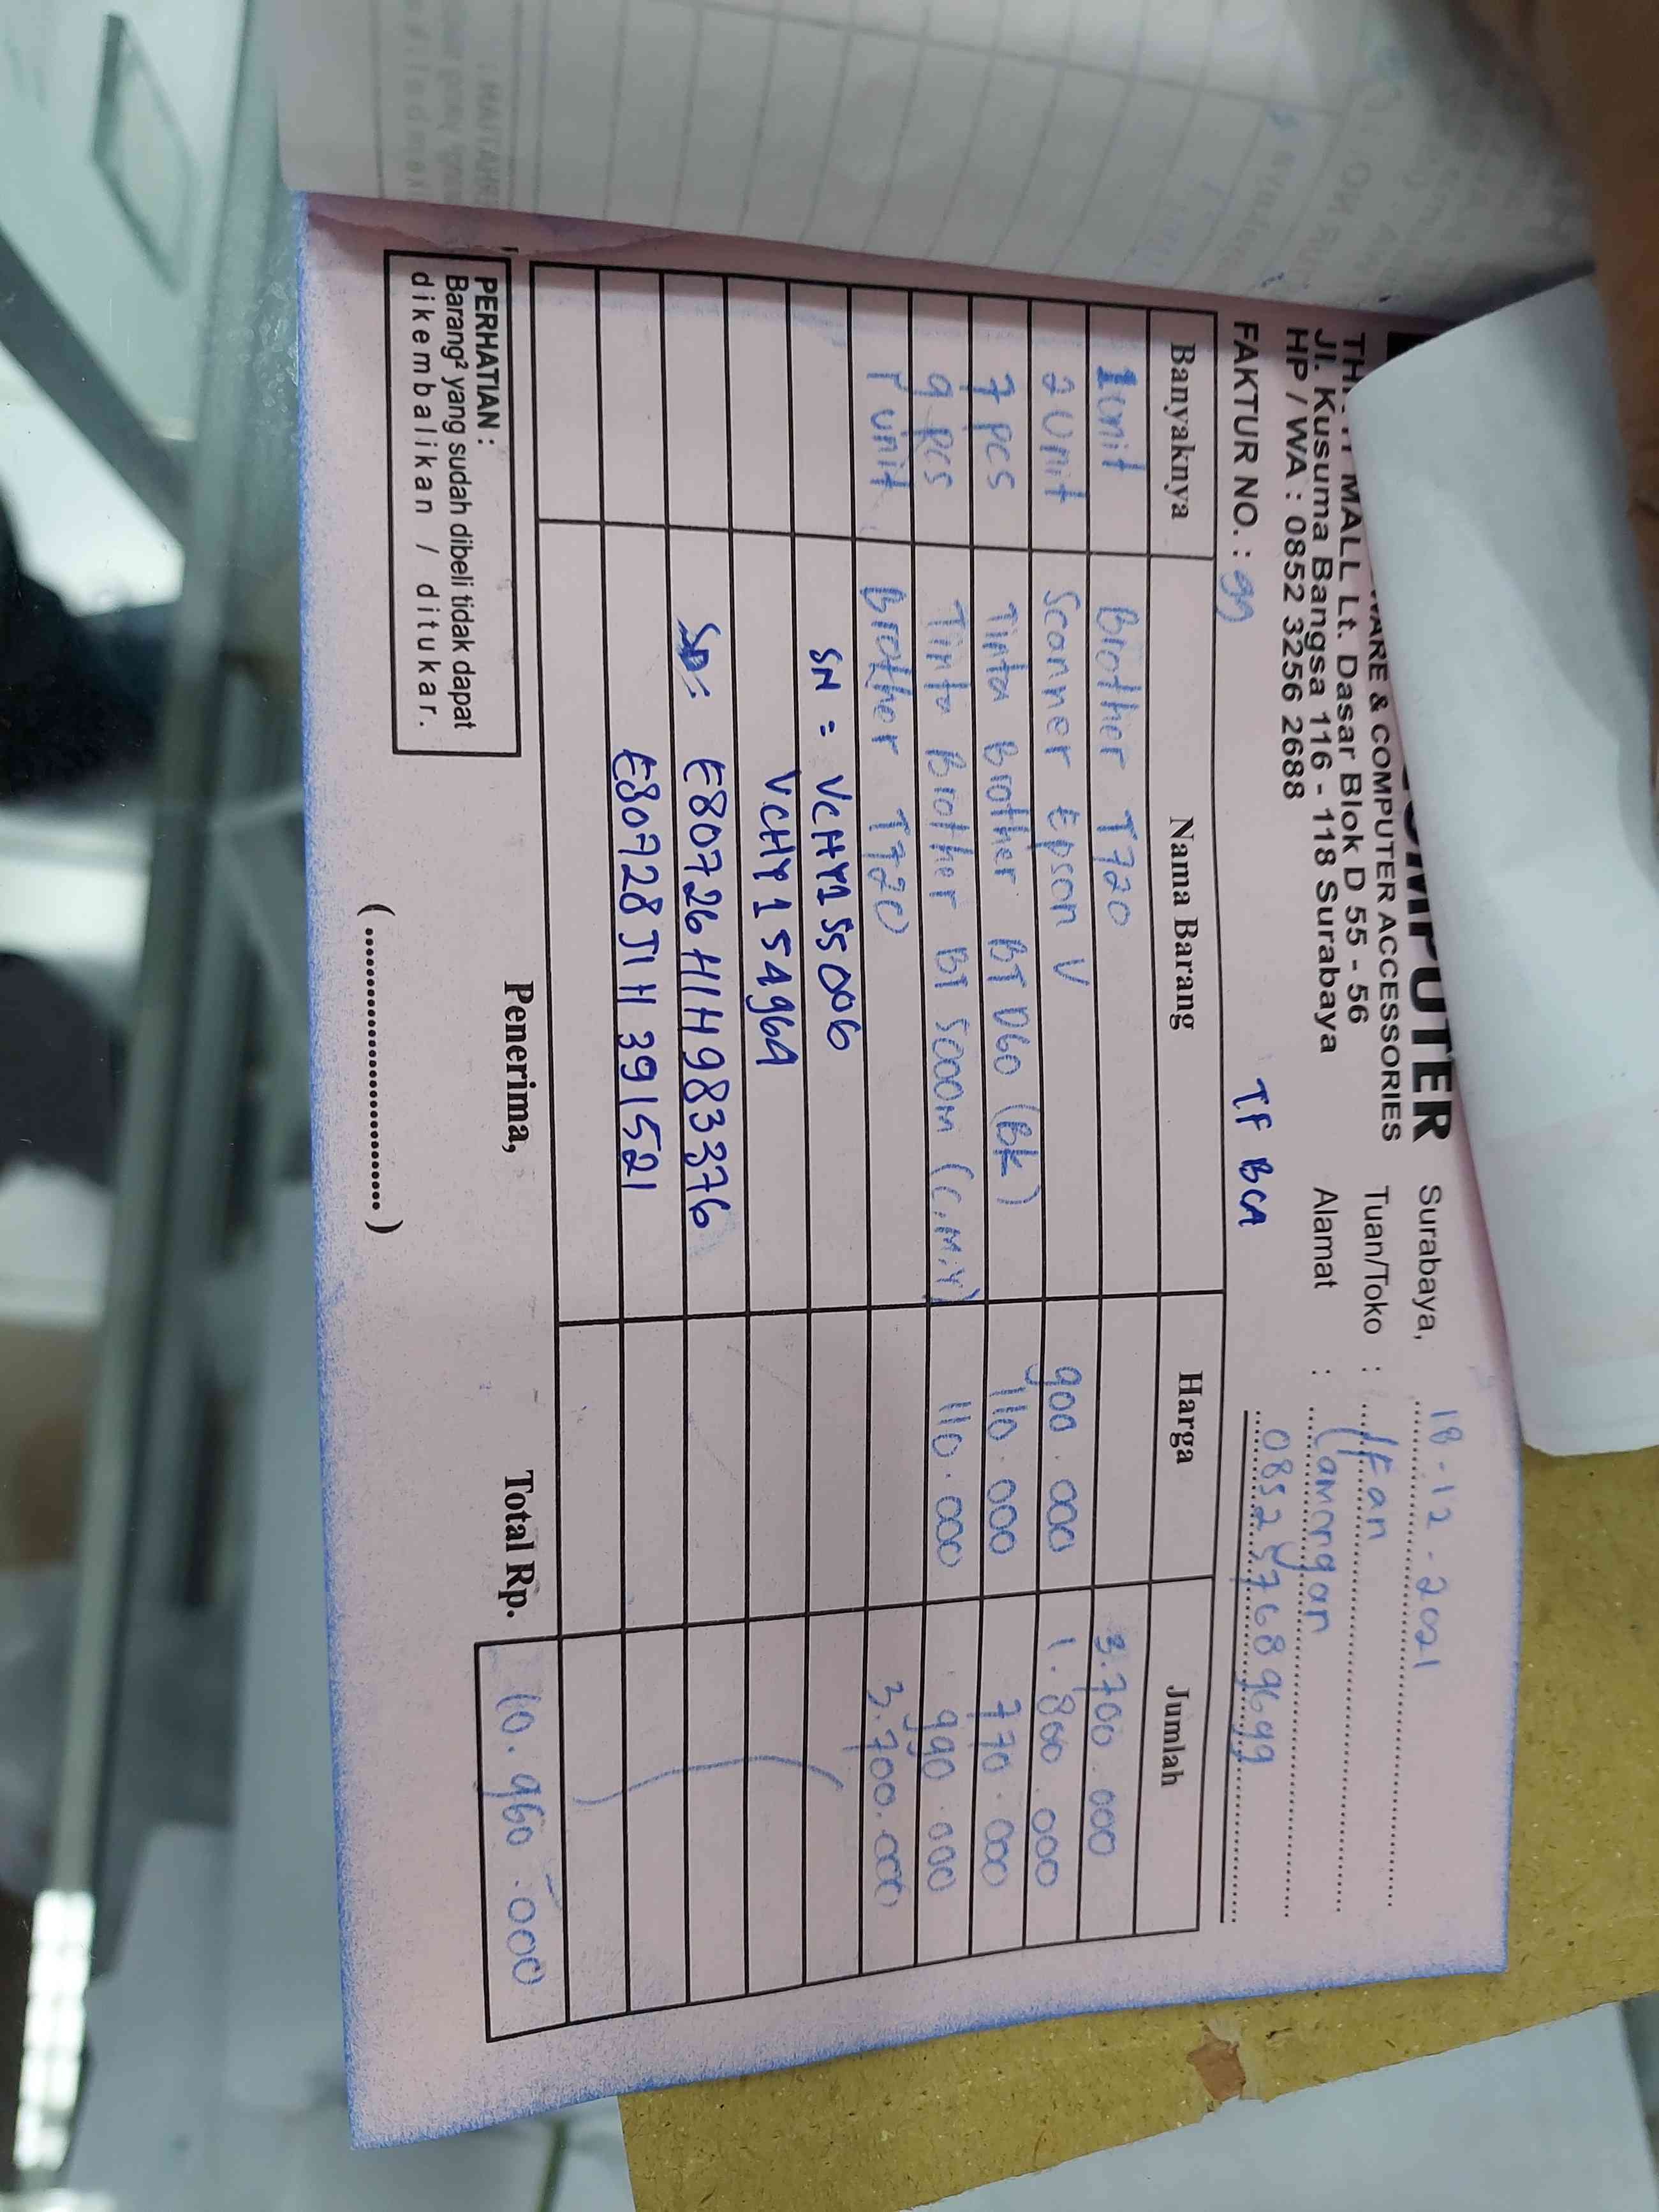 COMPUTER
WARE & COMPUTER ACCESSORIES
MALL Lt. Dasar Blok D 55 - 56
Jl. Kusuma Bangsa 116 - 118 Surabaya
HP / WA : 0852 3256 2688
Surabaya, 18-12-2021
Tuan/Toko : Ifan
Alamat : Lamongan
085257689699
FAKTUR NO. : 99 TF BCA
Banyaknya Nama Barang Harga Jumlah
1 unit Brother T720 3.700.000
2 Unit Scanner Epson V 900.000 1.800.000
7 pcs Tinta Brother BT D60 (BK) 110.000 770.000
9 pcs Tinta Brother BT 5000M (C.M.Y) 110.000 990.000
1 unit Brother T720 3.700.000
SN = VCHY155006
VCHY154964
E80726H1H983376
E80728J1H391521
PERHATIAN :
Barang² yang sudah dibeli tidak dapat
dikembalikan / ditukar.
Penerima,
(..............................)
Total Rp. 10.960.000